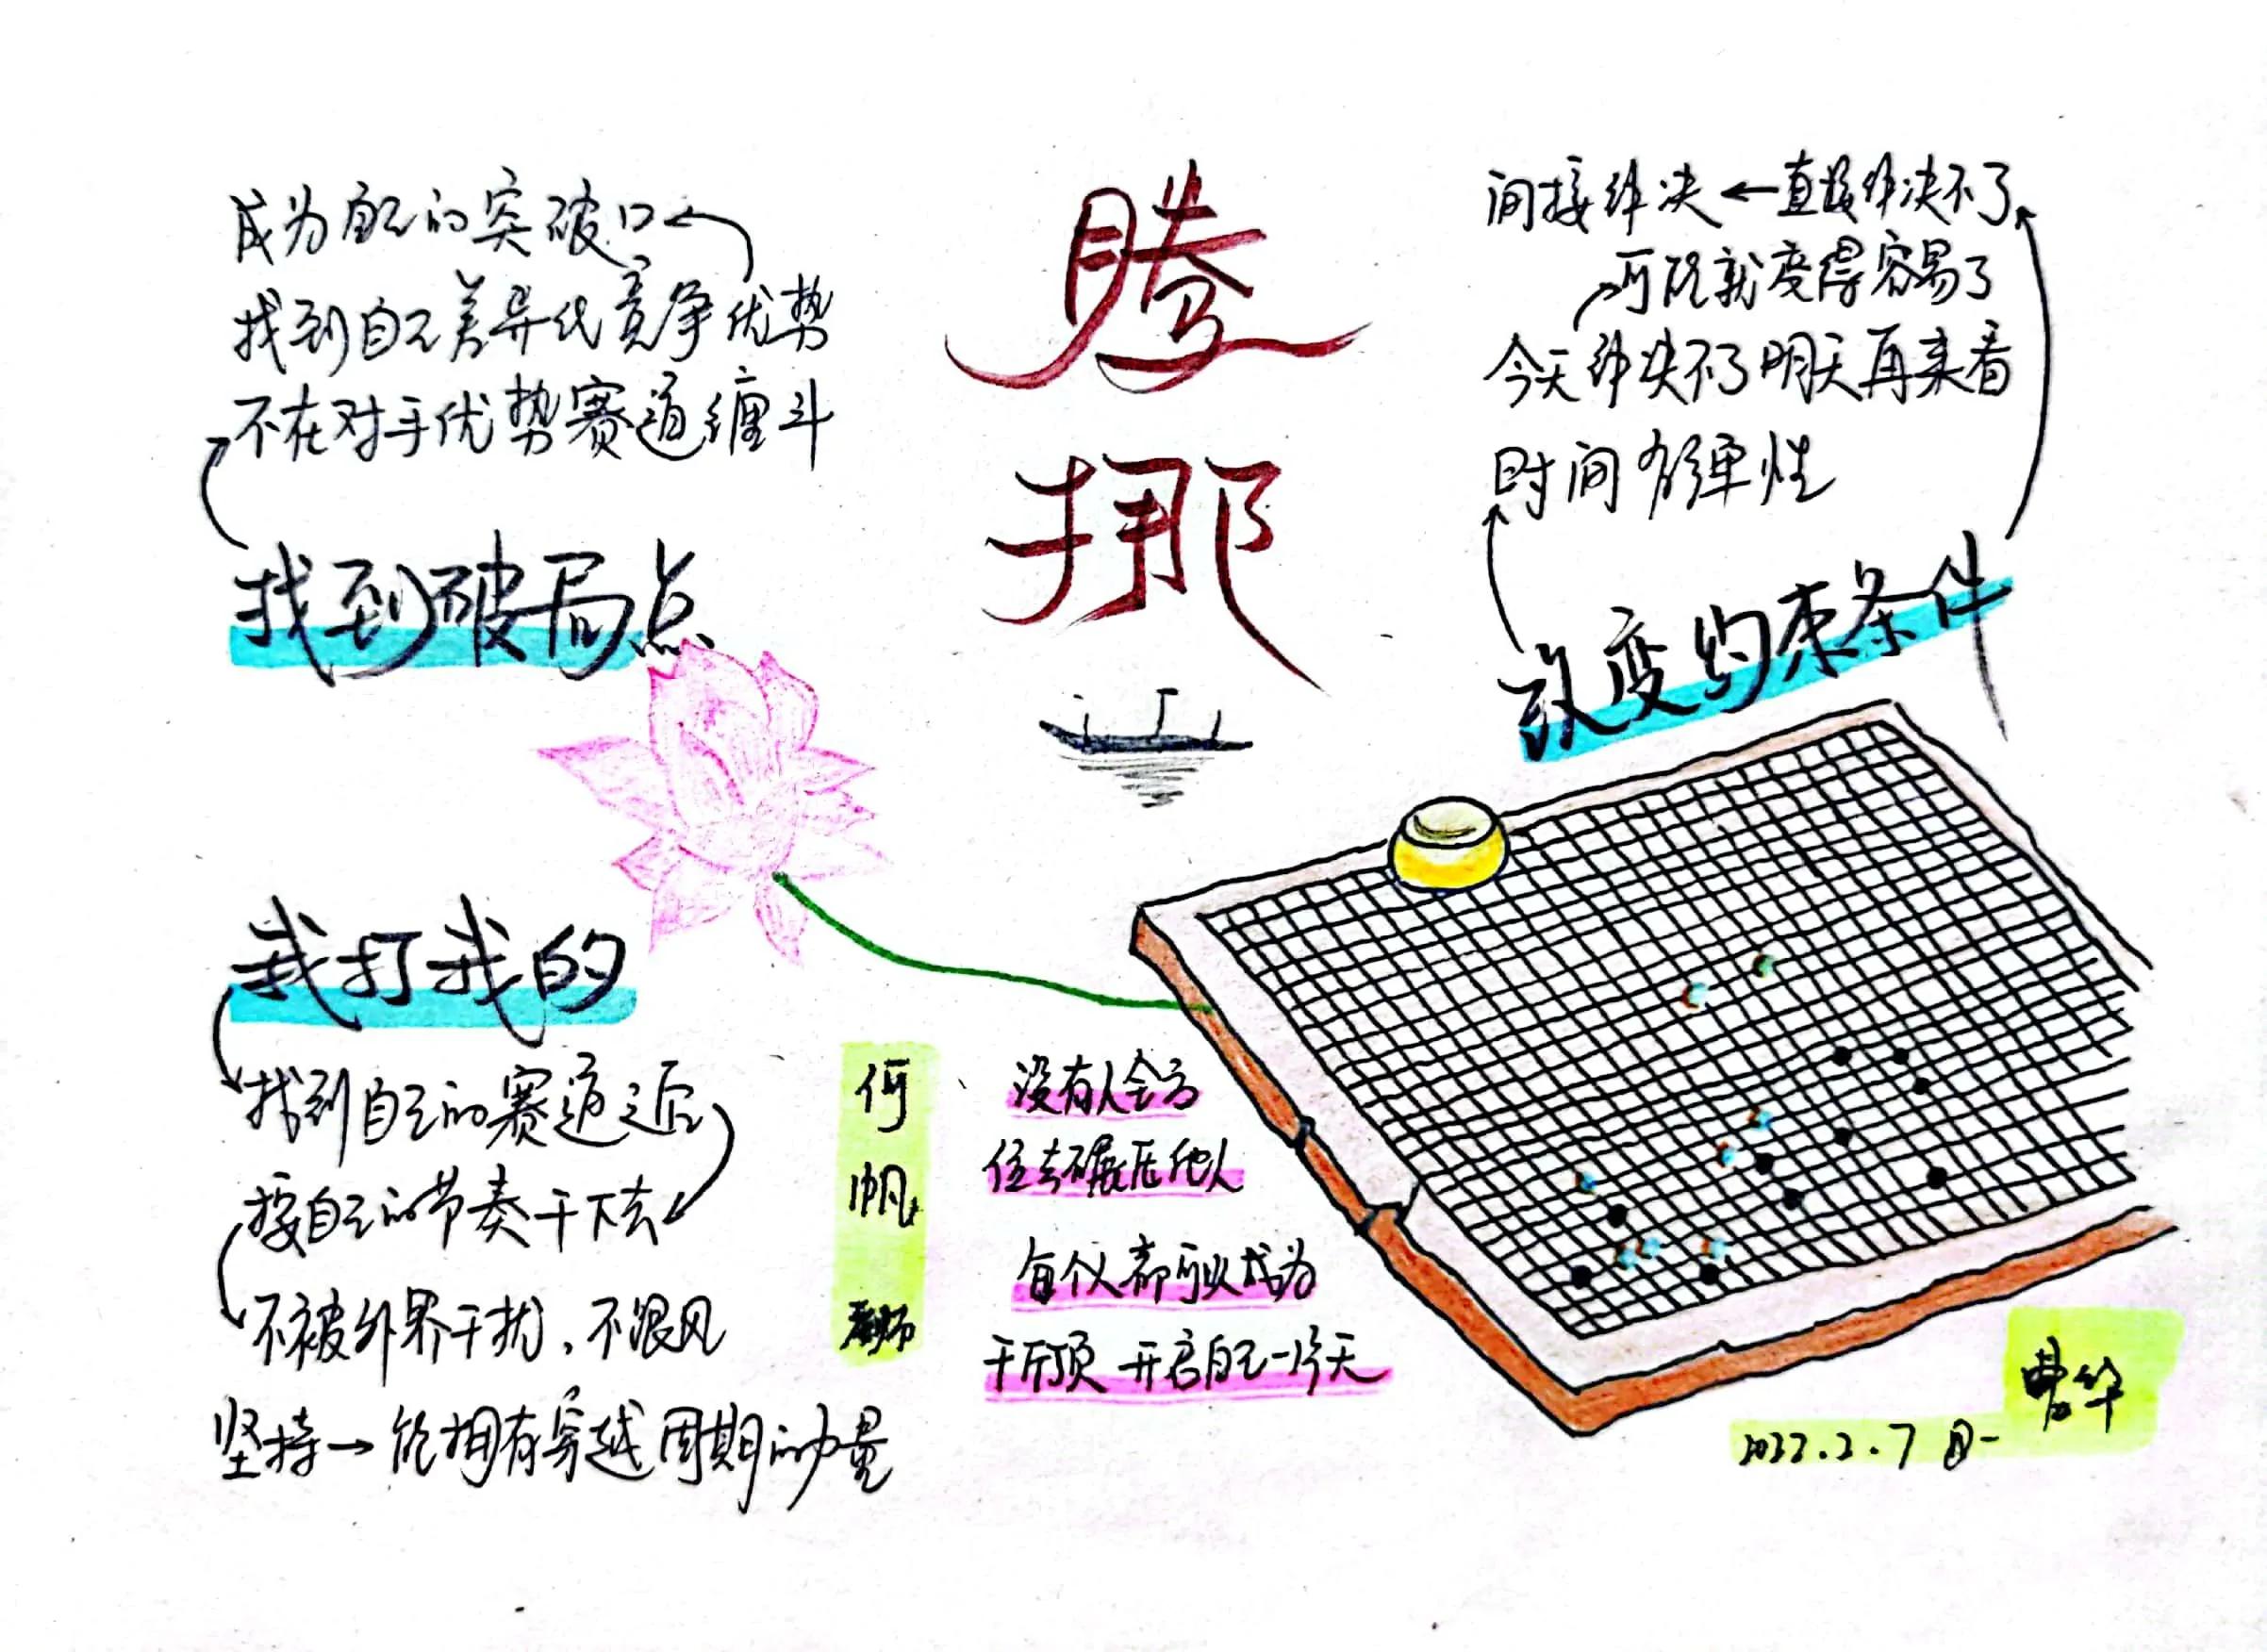 腾
挪
成为自己的突破口
找到自己差异化竞争优势
不在对手优势赛道缠斗
找到破局点
间接解决←直接解决不了
可能就变得容易了
今天解决不了明天再来看
时间有弹性
改变约束条件
我打我的
找到自己的赛道之后
按自己的节奏干下去
不被外界干扰，不跟风
坚持→能拥有穿越周期的力量
何
帆
老师
没有人会方
位去碾压他人
每个人都可以成为
千斤顶 开启自己一片天
曹华
2022.2.7 周一